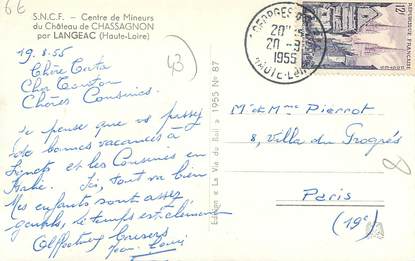 6€
S.N.C.F. - Centre de Mineurs
du Château de CHASSAGNON
par LANGEAC (Haute-Loire)
19.8.55
43
Chère Tata
Cher Tonton
Chères Cousines.
Je pense que vous passez
de bonnes vacances à
et les Cousines en
Italie. Ici, tout va bien
Mes enfants sont assez
gentils, le temps est clément
Affectueux baisers
Jean Louis
Edition « La Vie du Rail » 1955 N° 87
GEORGES
20
20 -
1955
HAUTE-LOIRE
12F
REPUBLIQUE FRANÇAISE
M. et Mme Pierrot
8, Villa du Progrès
Paris
(19e)